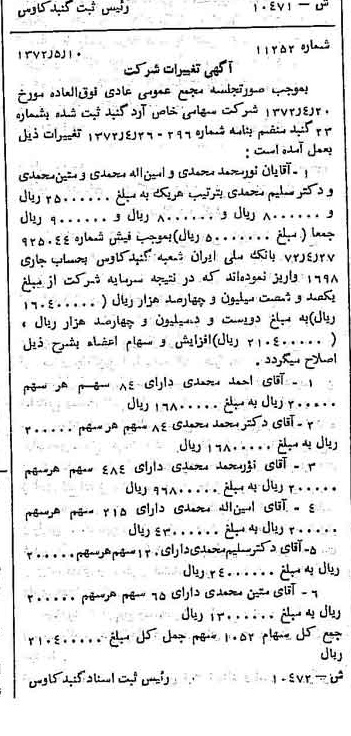 ش — ۱۰۴۷۱ رئیس ثبت گنبد کاوس
شماره ۱۱۲۵۲ ۱۳۷۲/۵/۱۰
آگهی تغییرات شرکت
بموجب صورتجلسه مجمع عمومی عادی فوق‌العاده مورخ
۱۳۷۲/۴/۲۰ شرکت سهامی خاص آرد گنبد ثبت شده بشماره
۲۳ گنبد منضم بنامه شماره ۲۹۶ - ۱۳۷۲/۴/۲۶ تغییرات ذیل
بعمل آمده است :
۱ - آقایان نورمحمد محمدی و امین‌اله محمدی و متین محمدی
و دکتر سلیم محمدی بترتیب هریک به مبلغ ۲۵۰۰۰۰۰۰ ریال
و ۸۰۰۰۰۰۰ ریال و ۸۰۰۰۰۰۰ ریال و ۹۰۰۰۰۰۰ ریال
جمعا ( مبلغ ۵۰۰۰۰۰۰۰ ریال) بموجب فیش شماره ۹۲۵۰۴۴
۷۲/۴/۲۷ بانک ملی ایران شعبه گنبدکاوس بحساب جاری
۱۶۹۸ واریز نموده‌اند که در نتیجه سرمایه شرکت از مبلغ
یکصد و شصت میلیون و چهارصد هزار ریال ( ۱۶۰۴۰۰۰۰۰
ریال) به مبلغ دویست و ده میلیون و چهارصد هزار ریال ،
( ۲۱۰۴۰۰۰۰۰ ریال) افزایش و سهام اعضاء بشرح ذیل
اصلاح میگردد .
۱ - آقای احمد محمدی دارای ۸۴ سهم هر سهم
۲۰۰۰۰۰ ریال به مبلغ ۱۶۸۰۰۰۰۰ ریال
۲ - آقای دکتر محمد محمدی ۸۴ سهم هر سهم ۲۰۰۰۰۰
ریال به مبلغ ۱۶۸۰۰۰۰۰ ریال
۳ - آقای نورمحمد محمدی دارای ۴۸۴ سهم هرسهم
۲۰۰۰۰۰ ریال به مبلغ ۹۶۸۰۰۰۰۰ ریال
۴ - آقای امین‌اله محمدی دارای ۲۱۵ سهم هرسهم
۲۰۰۰۰۰ ریال به مبلغ ۴۳۰۰۰۰۰۰ ریال
۵- آقای دکتر سلیم محمدی دارای ۱۲۰ سهم هرسهم ۲۰۰۰۰۰
ریال به مبلغ ۲۴۰۰۰۰۰۰ ریال
۶ - آقای متین محمدی دارای ۶۵ سهم هرسهم ۲۰۰۰۰۰
ریال به مبلغ ۱۳۰۰۰۰۰۰ ریال
جمع کل سهام ۱۰۵۲ سهم جمل کل مبلغ ۲۱۰۴۰۰۰۰۰
ریال
ش — ۱۰۴۷۲ رئیس ثبت اسناد گنبد کاوس